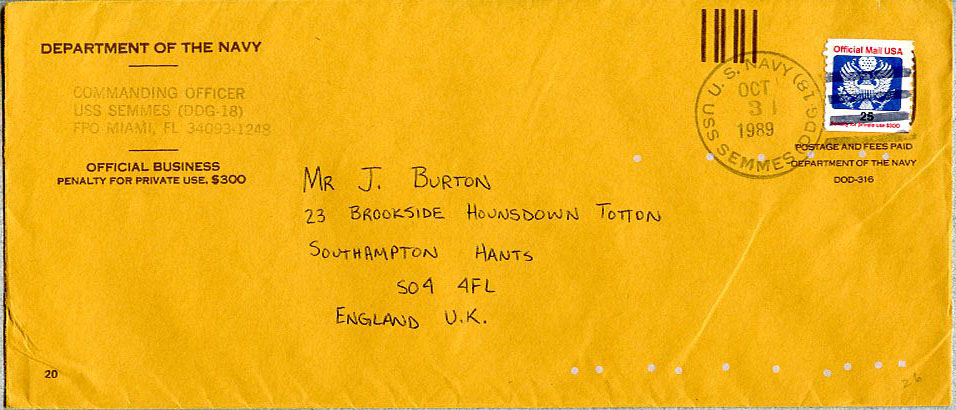 DEPARTMENT OF THE NAVY
COMMANDING OFFICER
USS SEMMES (DDG-18)
FPO MIAMI, FL 34093-1248
OFFICIAL BUSINESS
PENALTY FOR PRIVATE USE, $300
U. S. NAVY
USS SEMMES (DDG-18)
OCT
31
1989
Official Mail USA
25
Penalty for private use $300
POSTAGE AND FEES PAID
DEPARTMENT OF THE NAVY
DOD-316
MR J. BURTON
23 BROOKSIDE HOUNSDOWN TOTTON
SOUTHAMPTON HANTS
SO4 4FL
ENGLAND U.K.
20
26